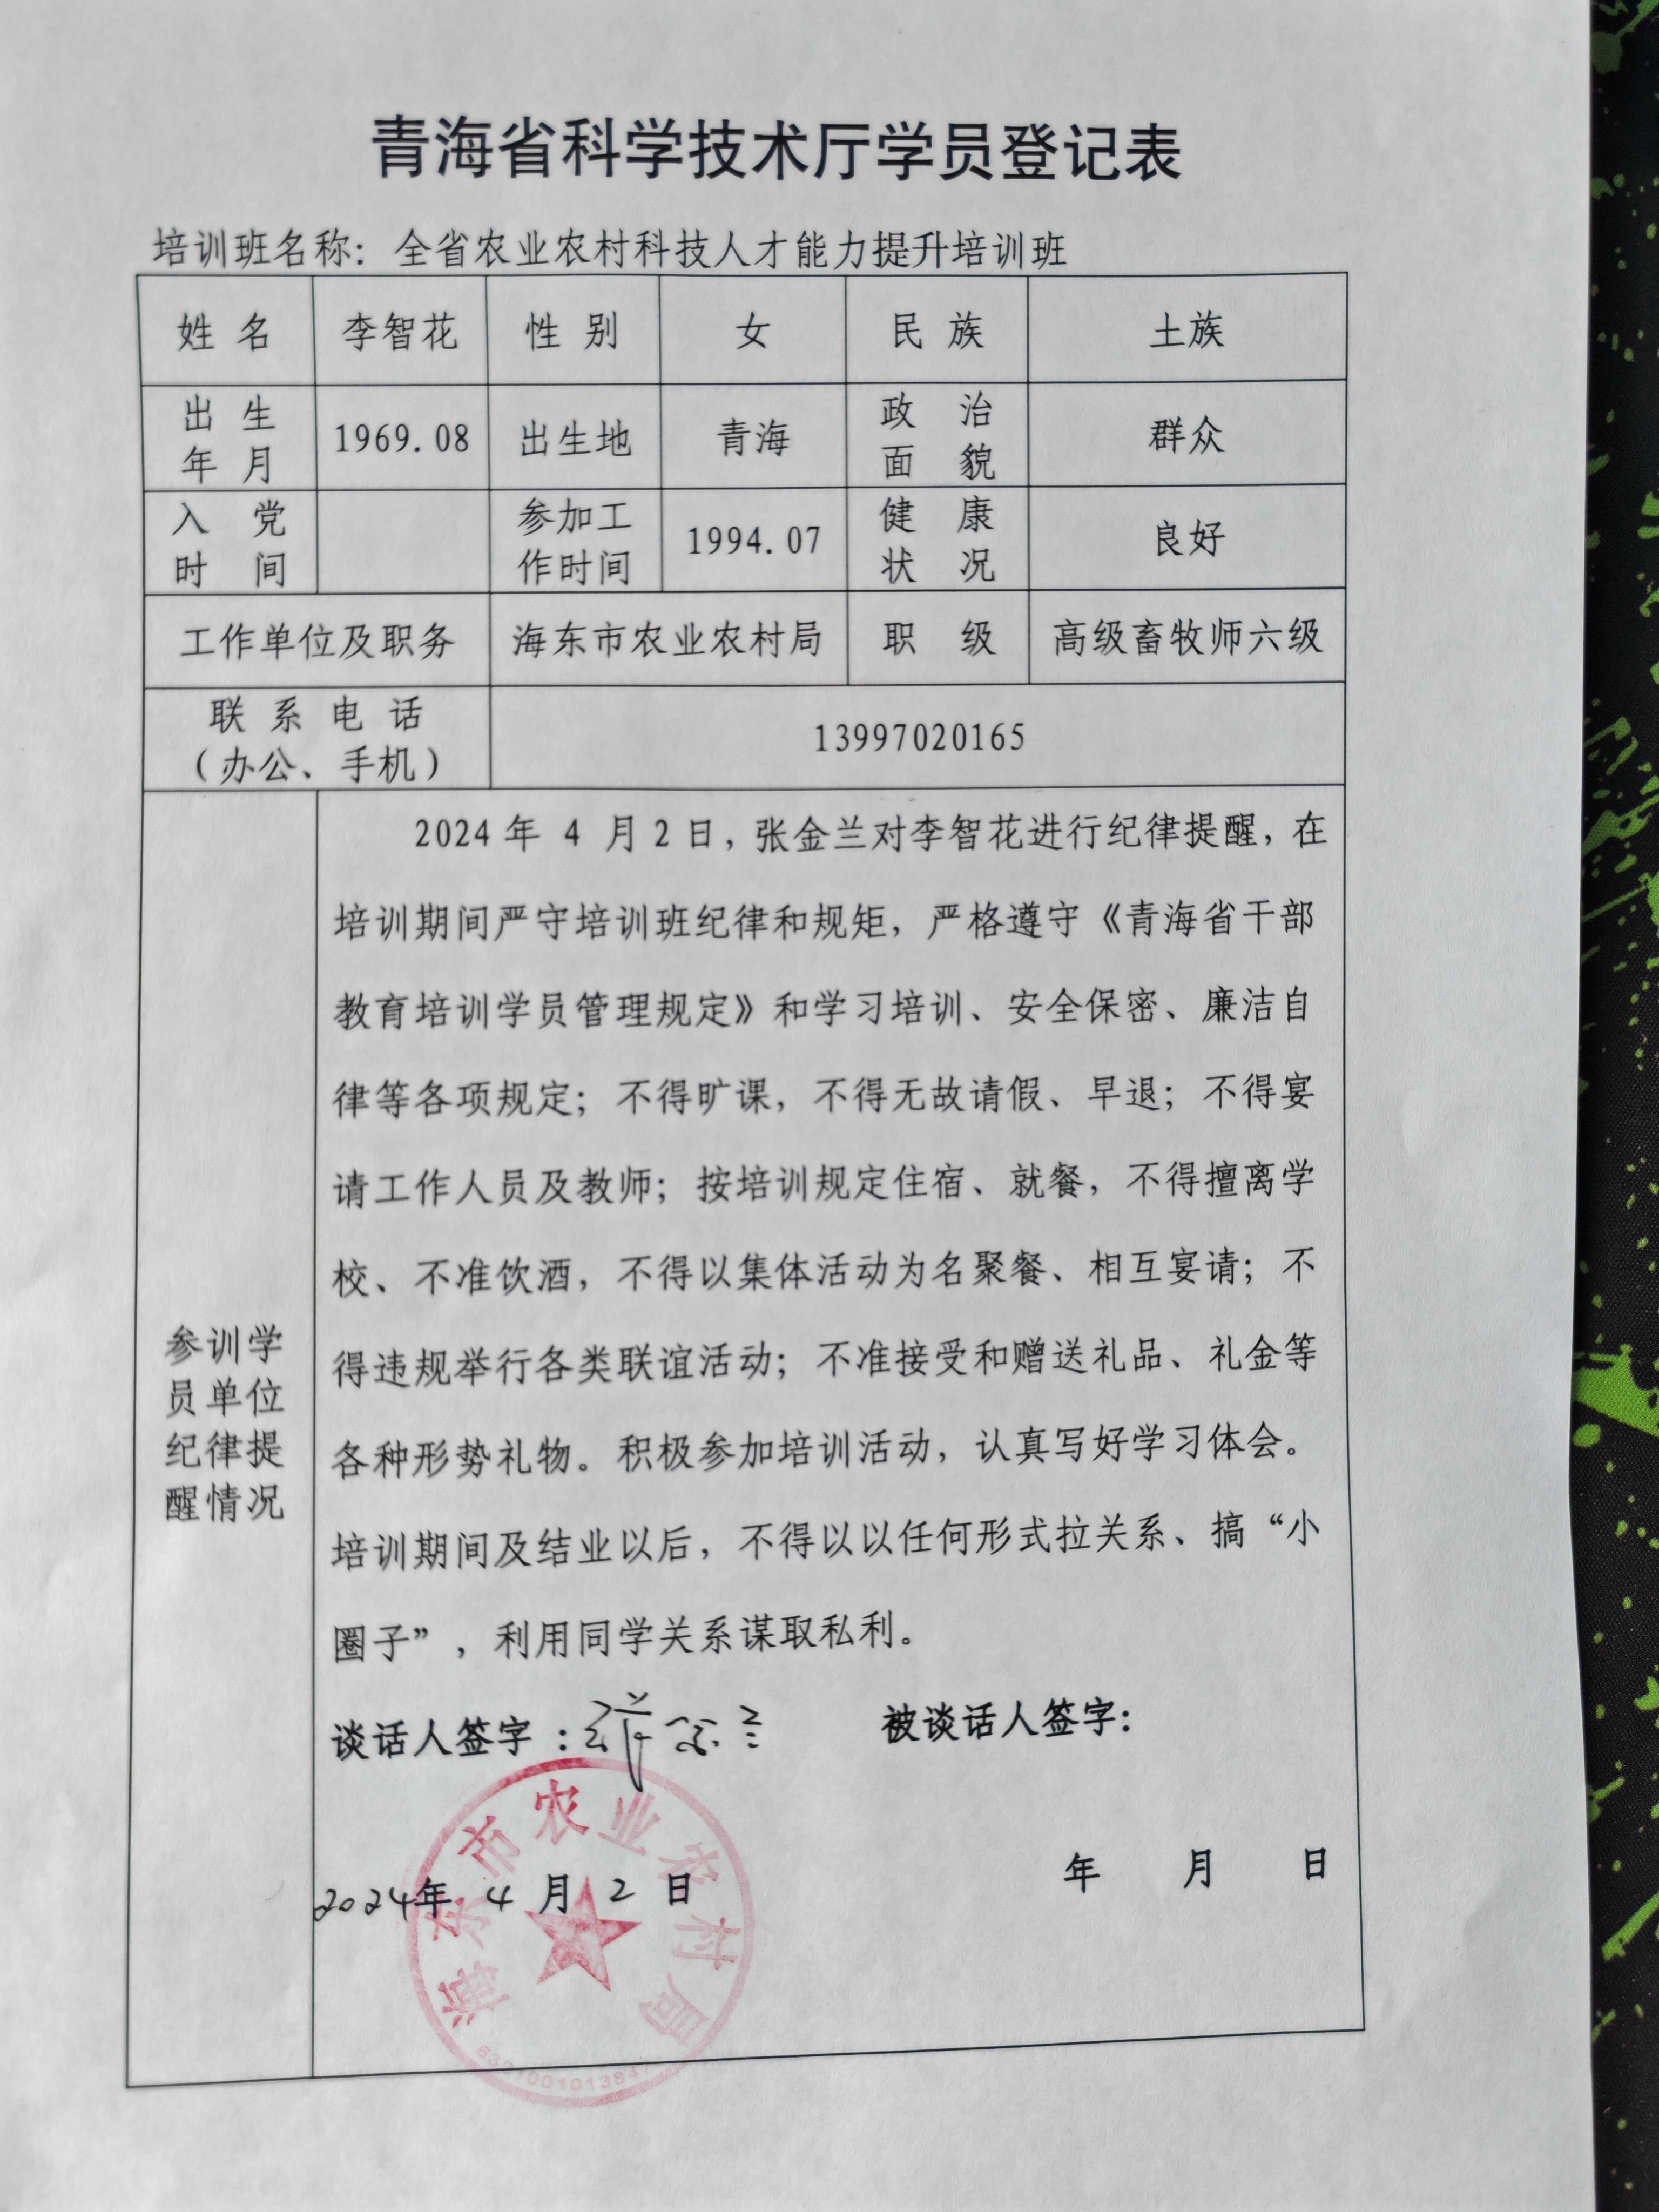 青海省科学技术厅学员登记表
培训班名称：全省农业农村科技人才能力提升培训班
姓 名 李智花 性 别 女 民 族 土族
出 生 年 月 1969.08 出生地 青海 政 治 面 貌 群众
入 党 时 间 参加工作时间 1994.07 健 康 状 况 良好
工作单位及职务 海东市农业农村局 职 级 高级畜牧师六级
联 系 电 话
（办公、手机） 13997020165
参训学
员单位
纪律提
醒情况
2024 年 4 月 2 日，张金兰对李智花进行纪律提醒，在
培训期间严守培训班纪律和规矩，严格遵守《青海省干部
教育培训学员管理规定》和学习培训、安全保密、廉洁自
律等各项规定；不得旷课，不得无故请假、早退；不得宴
请工作人员及教师；按培训规定住宿、就餐，不得擅离学
校、不准饮酒，不得以集体活动为名聚餐、相互宴请；不
得违规举行各类联谊活动；不准接受和赠送礼品、礼金等
各种形势礼物。积极参加培训活动，认真写好学习体会。
培训期间及结业以后，不得以以任何形式拉关系、搞“小
圈子”，利用同学关系谋取私利。
谈话人签字： 被谈话人签字：
2024年 4 月 2 日 年 月 日
海东市农业农村局